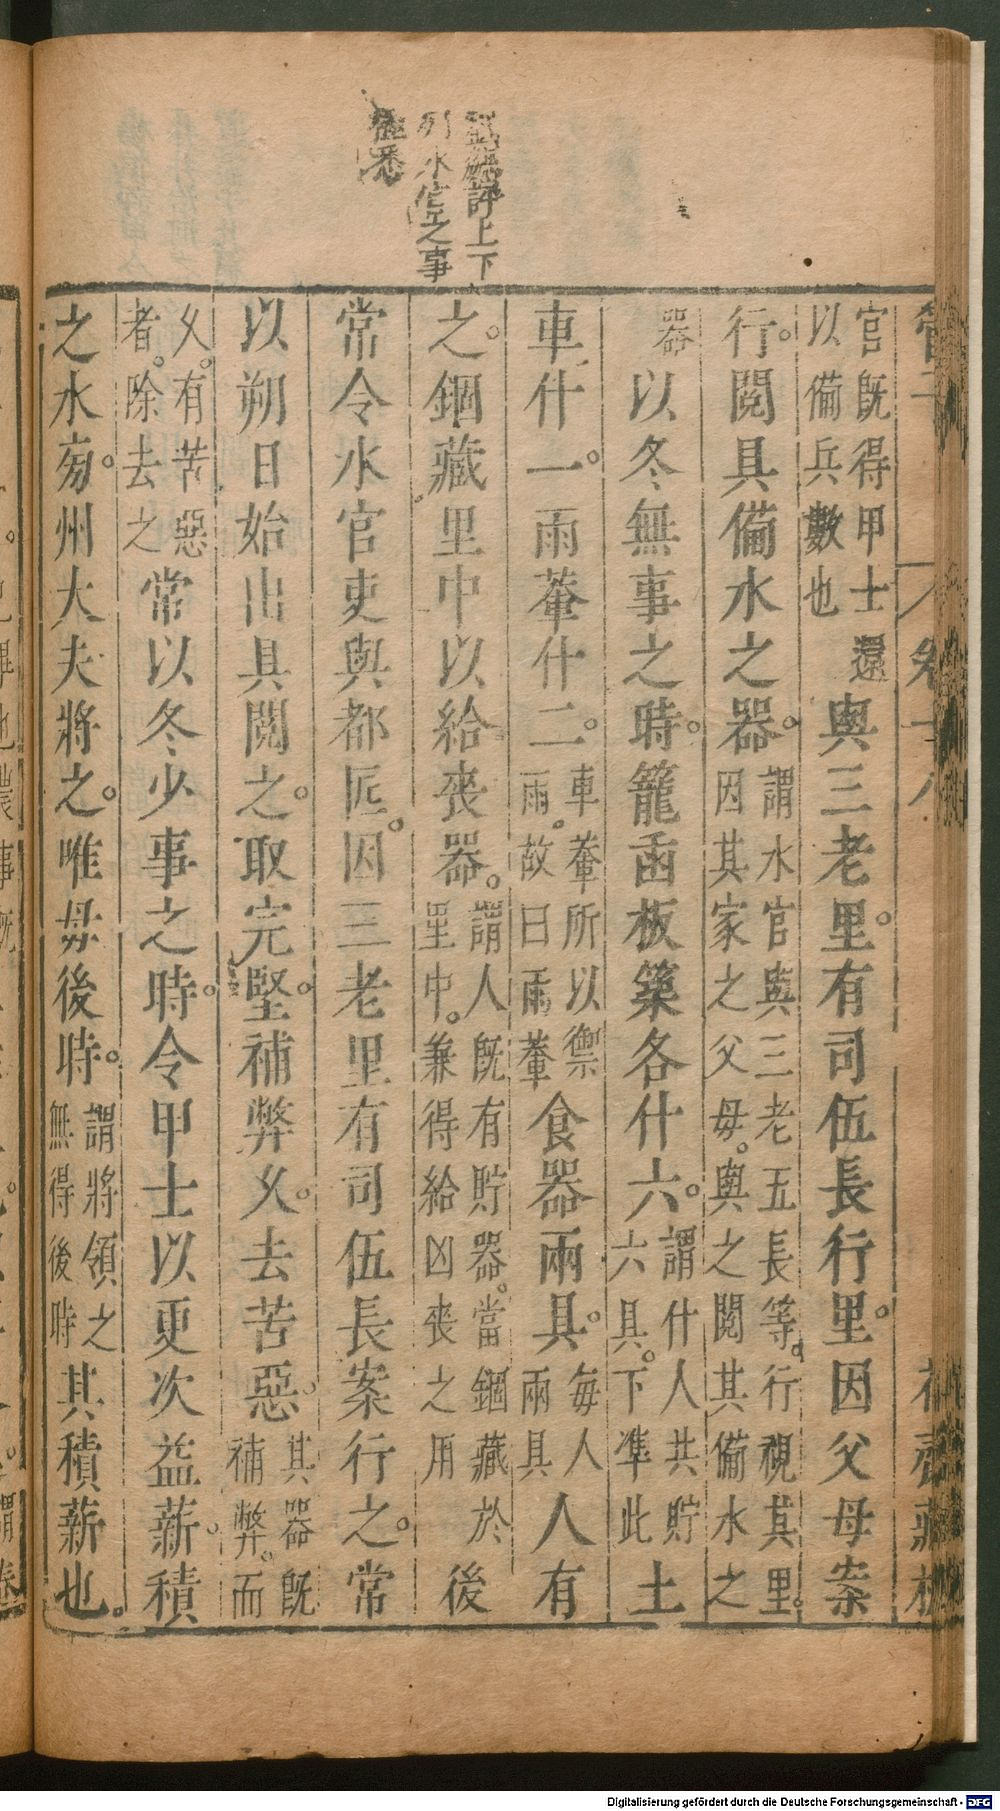 評上下
列水官之事
悉
管子 卷十八
官既得甲士還
以備兵數也
與三老里。有司伍長行里。因父母案
行。閱具備水之器。
謂水官與三老五長等。行視其里。
因其家之父毋。與之閱其備水之
器
以冬無事之時。籠臿板築各什六。
謂什人共貯
六具。下凖此
土
車什一。雨輂什二。
車輂所以禦
雨。故曰雨輂
食器兩具。
每人
兩具
人有
之。錮藏里中以給喪器。
謂人既有貯器。當錮藏於
里中。兼得給凶喪之用
後
常令水官吏與都匠。因三老里有司伍長案行之。常
以朔日始出具閱之。取完堅。補弊久。去苦惡。
其器既
補弊。而
久。有苦惡
者。除去之
常以冬少事之時。令甲士以更次益薪。積
之水旁。州大夫將之。唯毋後時。
謂將領之
無得後時
其積薪也。
Digitalisierung gefördert durch die Deutsche Forschungsgemeinschaft - DFG